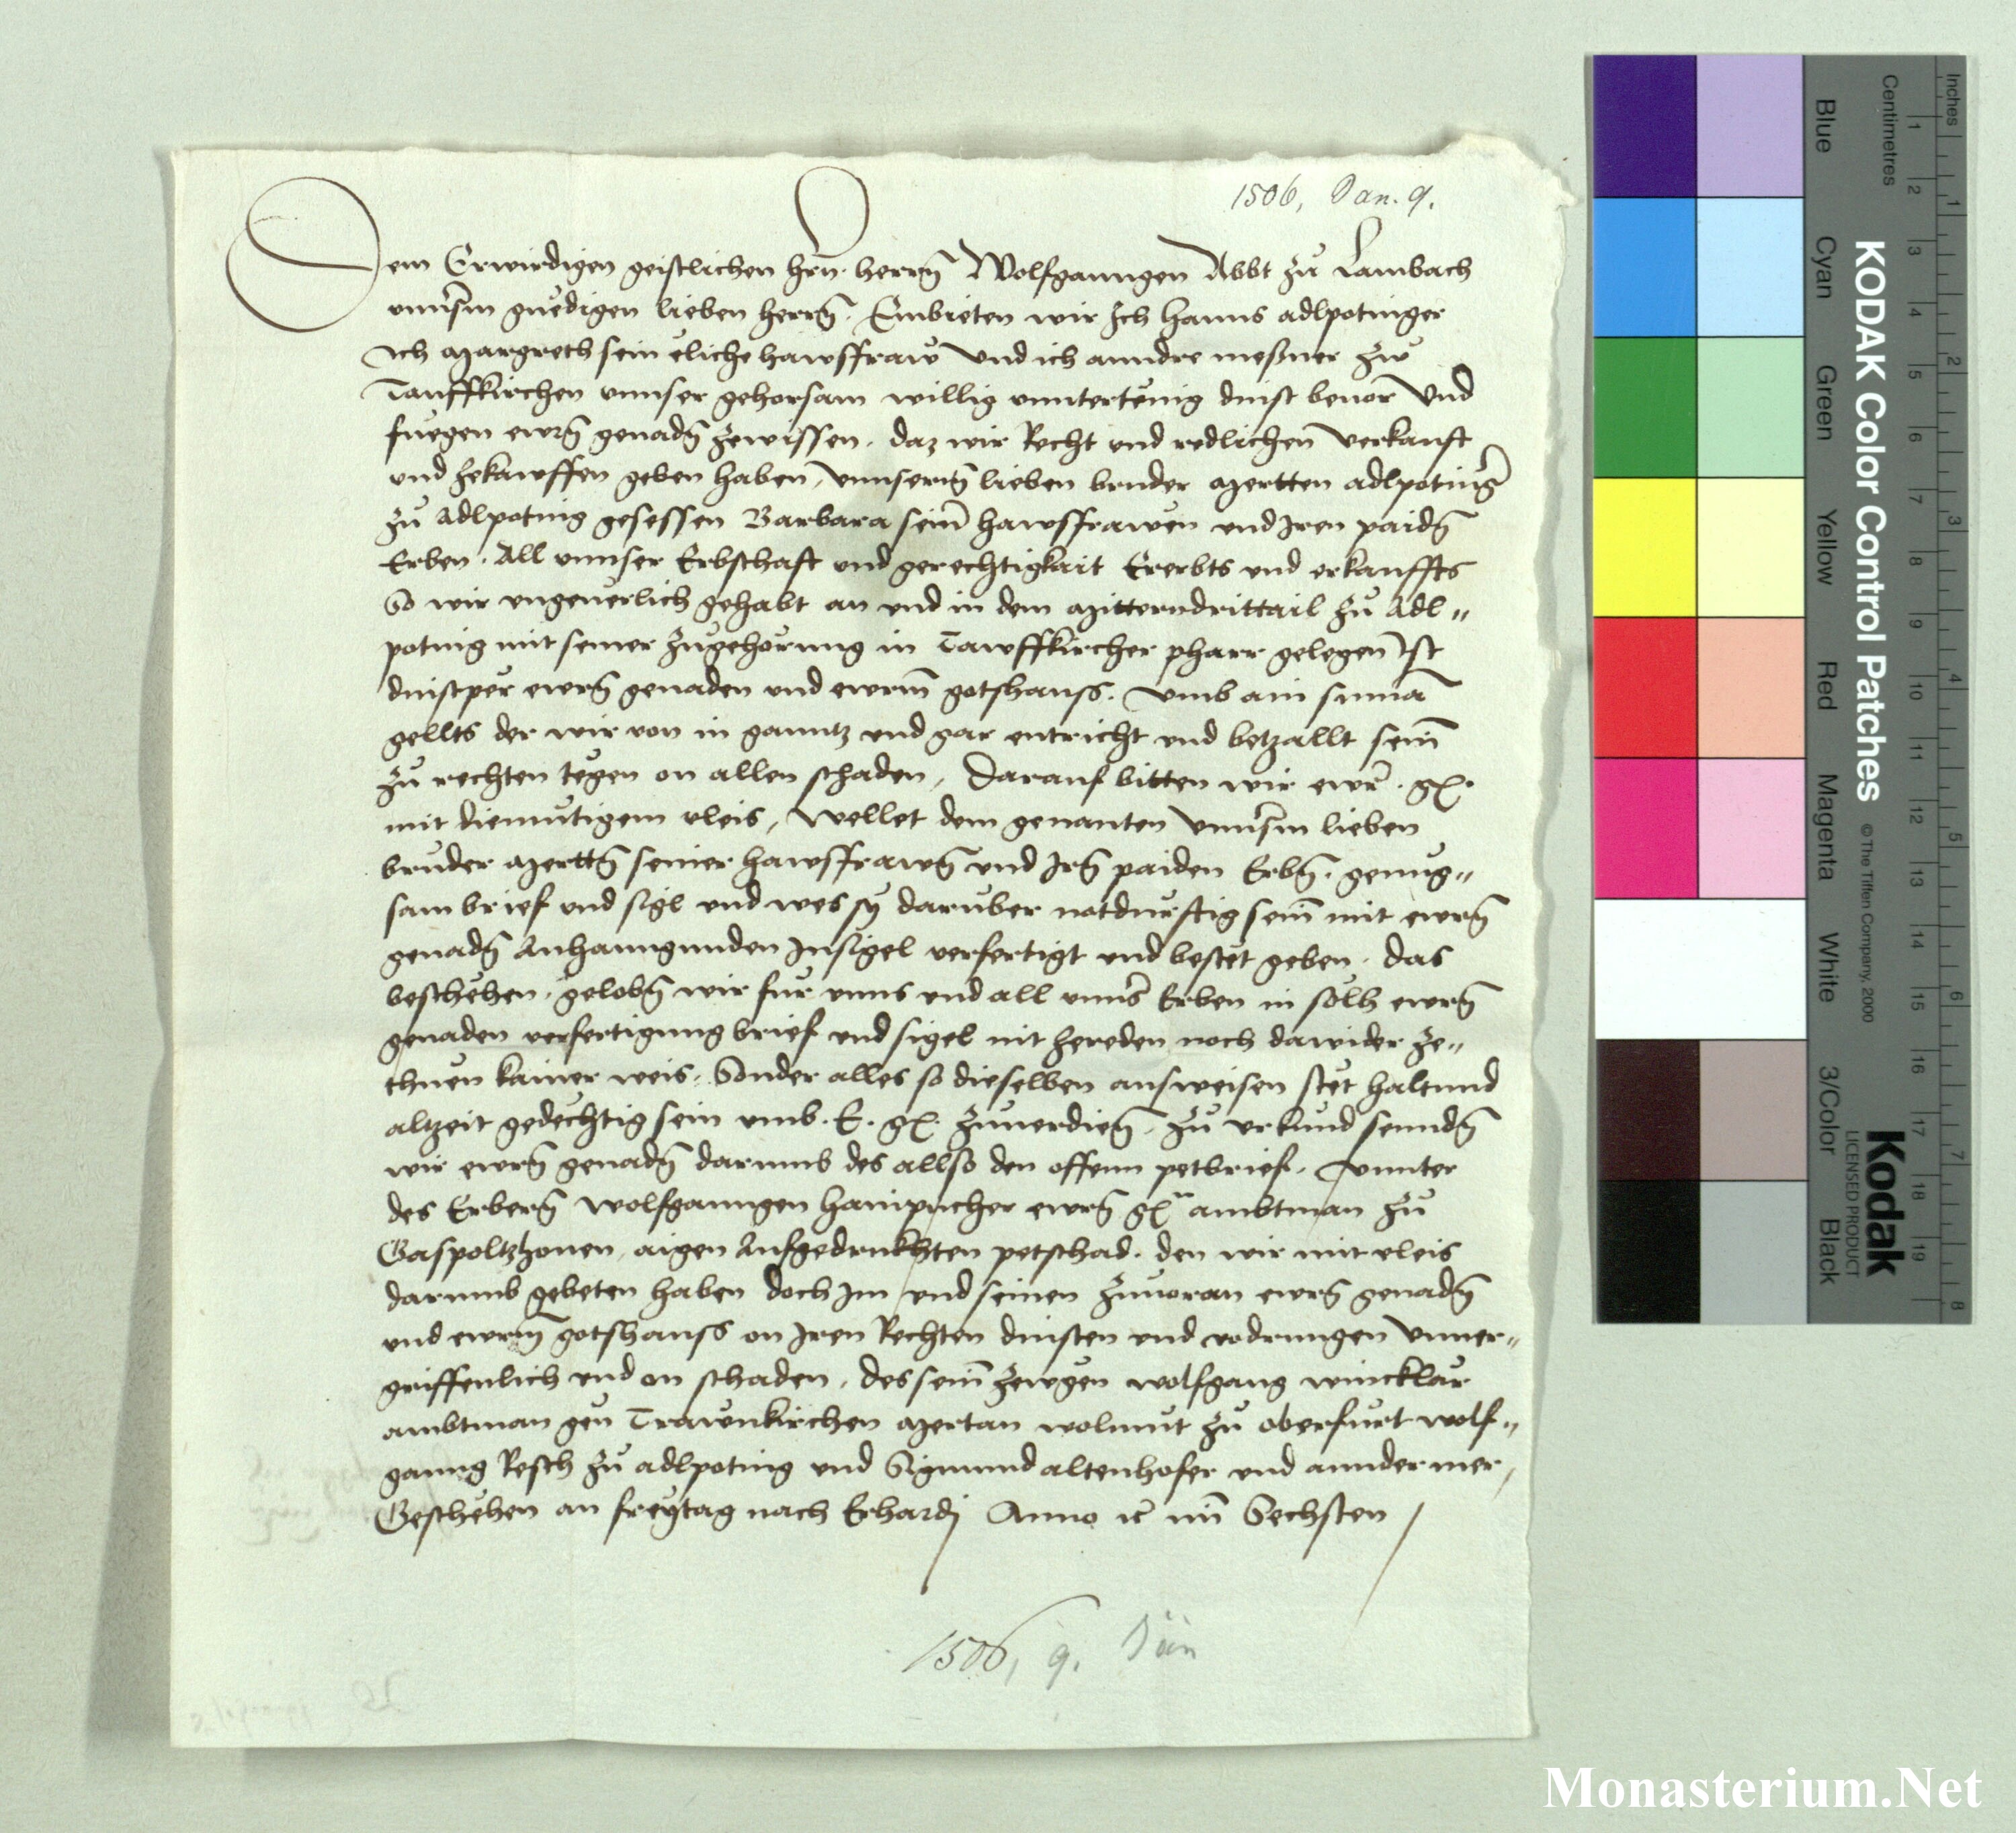 1506, Jan. 9.
Dem Erwirdigen geistlichen hrn. herrn Wolfganngen Abbt zu Lambach
unnsrm gnedigen lieben herrn. Embieten wir Ich hanns adlpotinger
Ich Margreth sein eliche hawsfraw und ich anndre meßner zw
Taufkirchen unnser gehorsam willig unntertenig dinst bevor Und
fuegen ewrn genadn zewissen. daz wir Recht und redlichen verkauft
und zekawffen geben haben, unnserm lieben bruder Mertten adlpotingr
zu Adlpoting gesessen Barbara seinr hawsfrawen und Iren paidn
Erben. All unnser Erbschaft und gerechtigkait Ererbts und erkauffts
So wir ungeverlich gehabt an und in dem Mitterndrittail zu Adl"
poting mit seiner zugehorung in Tawffkircher pharr gelegen Ist
dinstper ewrn genaden und ewrm gotshauss. umb ain suma
gellts der wir von in ganntz und gar entricht und betzallt sein
zu rechten tegen on allen schaden, Darauf bitten wir ewr. g.
mit diemutigem vleis, Wellet dem genanten unnsrm lieben
bruder Merttn seiner hawsfrawn und Irn paiden Erbn. genug"
sam brief und sigl und wes sy daruber notdurftig sein mit ewrn
genadn Anhanngunden Insigel verfertigt und bestet geben. das
beschehen, gelobn wir fur unns und all unnsr Erben in solh ewrn
genaden verfertigung brief und sigel nit zereden noch dawider ze"
thuen kainer weis, Sonder alles so dieselben ausweisen stet haltund
altzeit gedechtig sein umb. E. g. zuverdien, zu urkund senndn
wir ewrn genadn darumb des allso den offenn petbrief, unnter
des Erbern Wolfganngen haripucher ewrn g. ambtman zu
Gaspoltzhouen, aigen Aufgedrukhten petschad. den wir mit vleis
darumb gebeten haben doch Im und seinen zuvoran ewrn genadn
und ewrm gotshauss on Iren Rechten dinsten und vodrungen unver"
griffenlich und on schaden, des sein zewgen wolfgang wincklar
ambtman gen Trawnkirchen Mertan wolmut zu oberfurt wolf"
ganng Resch zu adlpoting und Sigmund altenhofer und annder mer,
Geschehen an freytag nach Erhardj Anno xc im Sechsten
1506, 9. Jän
KODAK Color Control Patches
© The Tiffen Company, 2000
Kodak
LICENSED PRODUCT
Inches
Centimetres
Blue
Cyan
Green
Yellow
Red
Magenta
White
3/Color
Black
1 2 3 4 5 6 7 8 9 10 11 12 13 14 15 16 17 18 19
1 2 3 4 5 6 7 8
Monasterium.Net